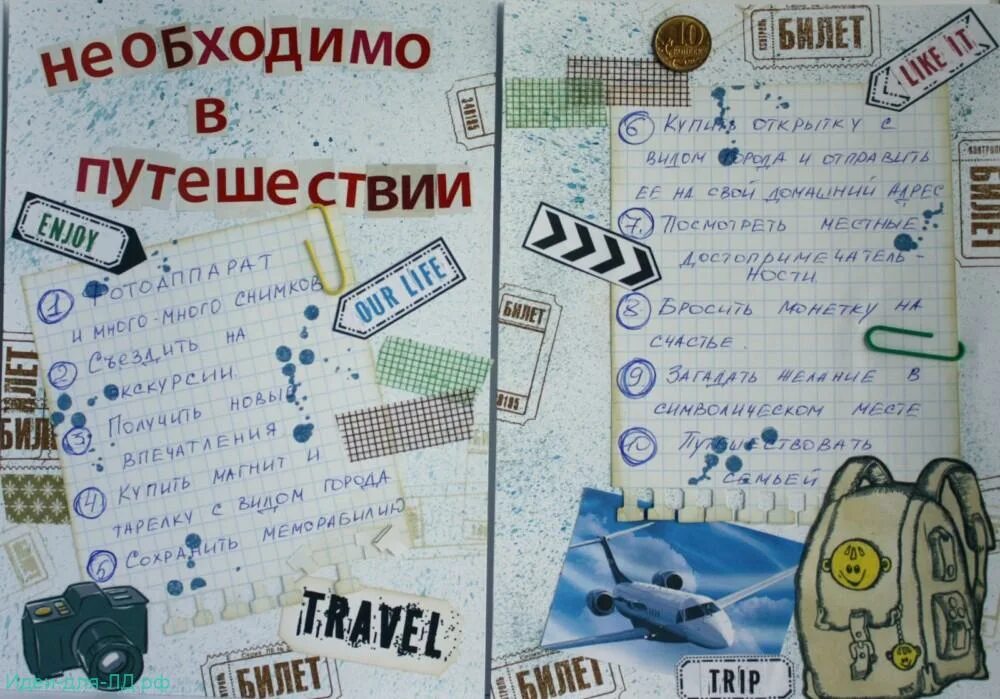 необходимо
в
путешествии
ENJOY
① Фотоаппарат
и много-много снимков
OUR LIFE
② Съездить на
экскурсии
③ Получить новые
впечатления
④ Купить магнит и
тарелку с видом города
⑤ Сохранить меморабилию
TRAVEL
БИЛЕТ
БИЛЕТ
Идеи-для-ЛД.рф
10
КОНТРОЛЬ
БИЛЕТ
LIKE IT
⑥ Купить открытку с
видом города и отправить
ее на свой домашний адрес
⑦ Посмотреть местные
достопримечатель-
ности
⑧ Бросить монетку на
счастье.
⑨ Загадать желание в
символическом месте
⑩ Путешествовать
семьей
БИЛЕТ
БИЛЕТ
TRIP
БИЛЕТ